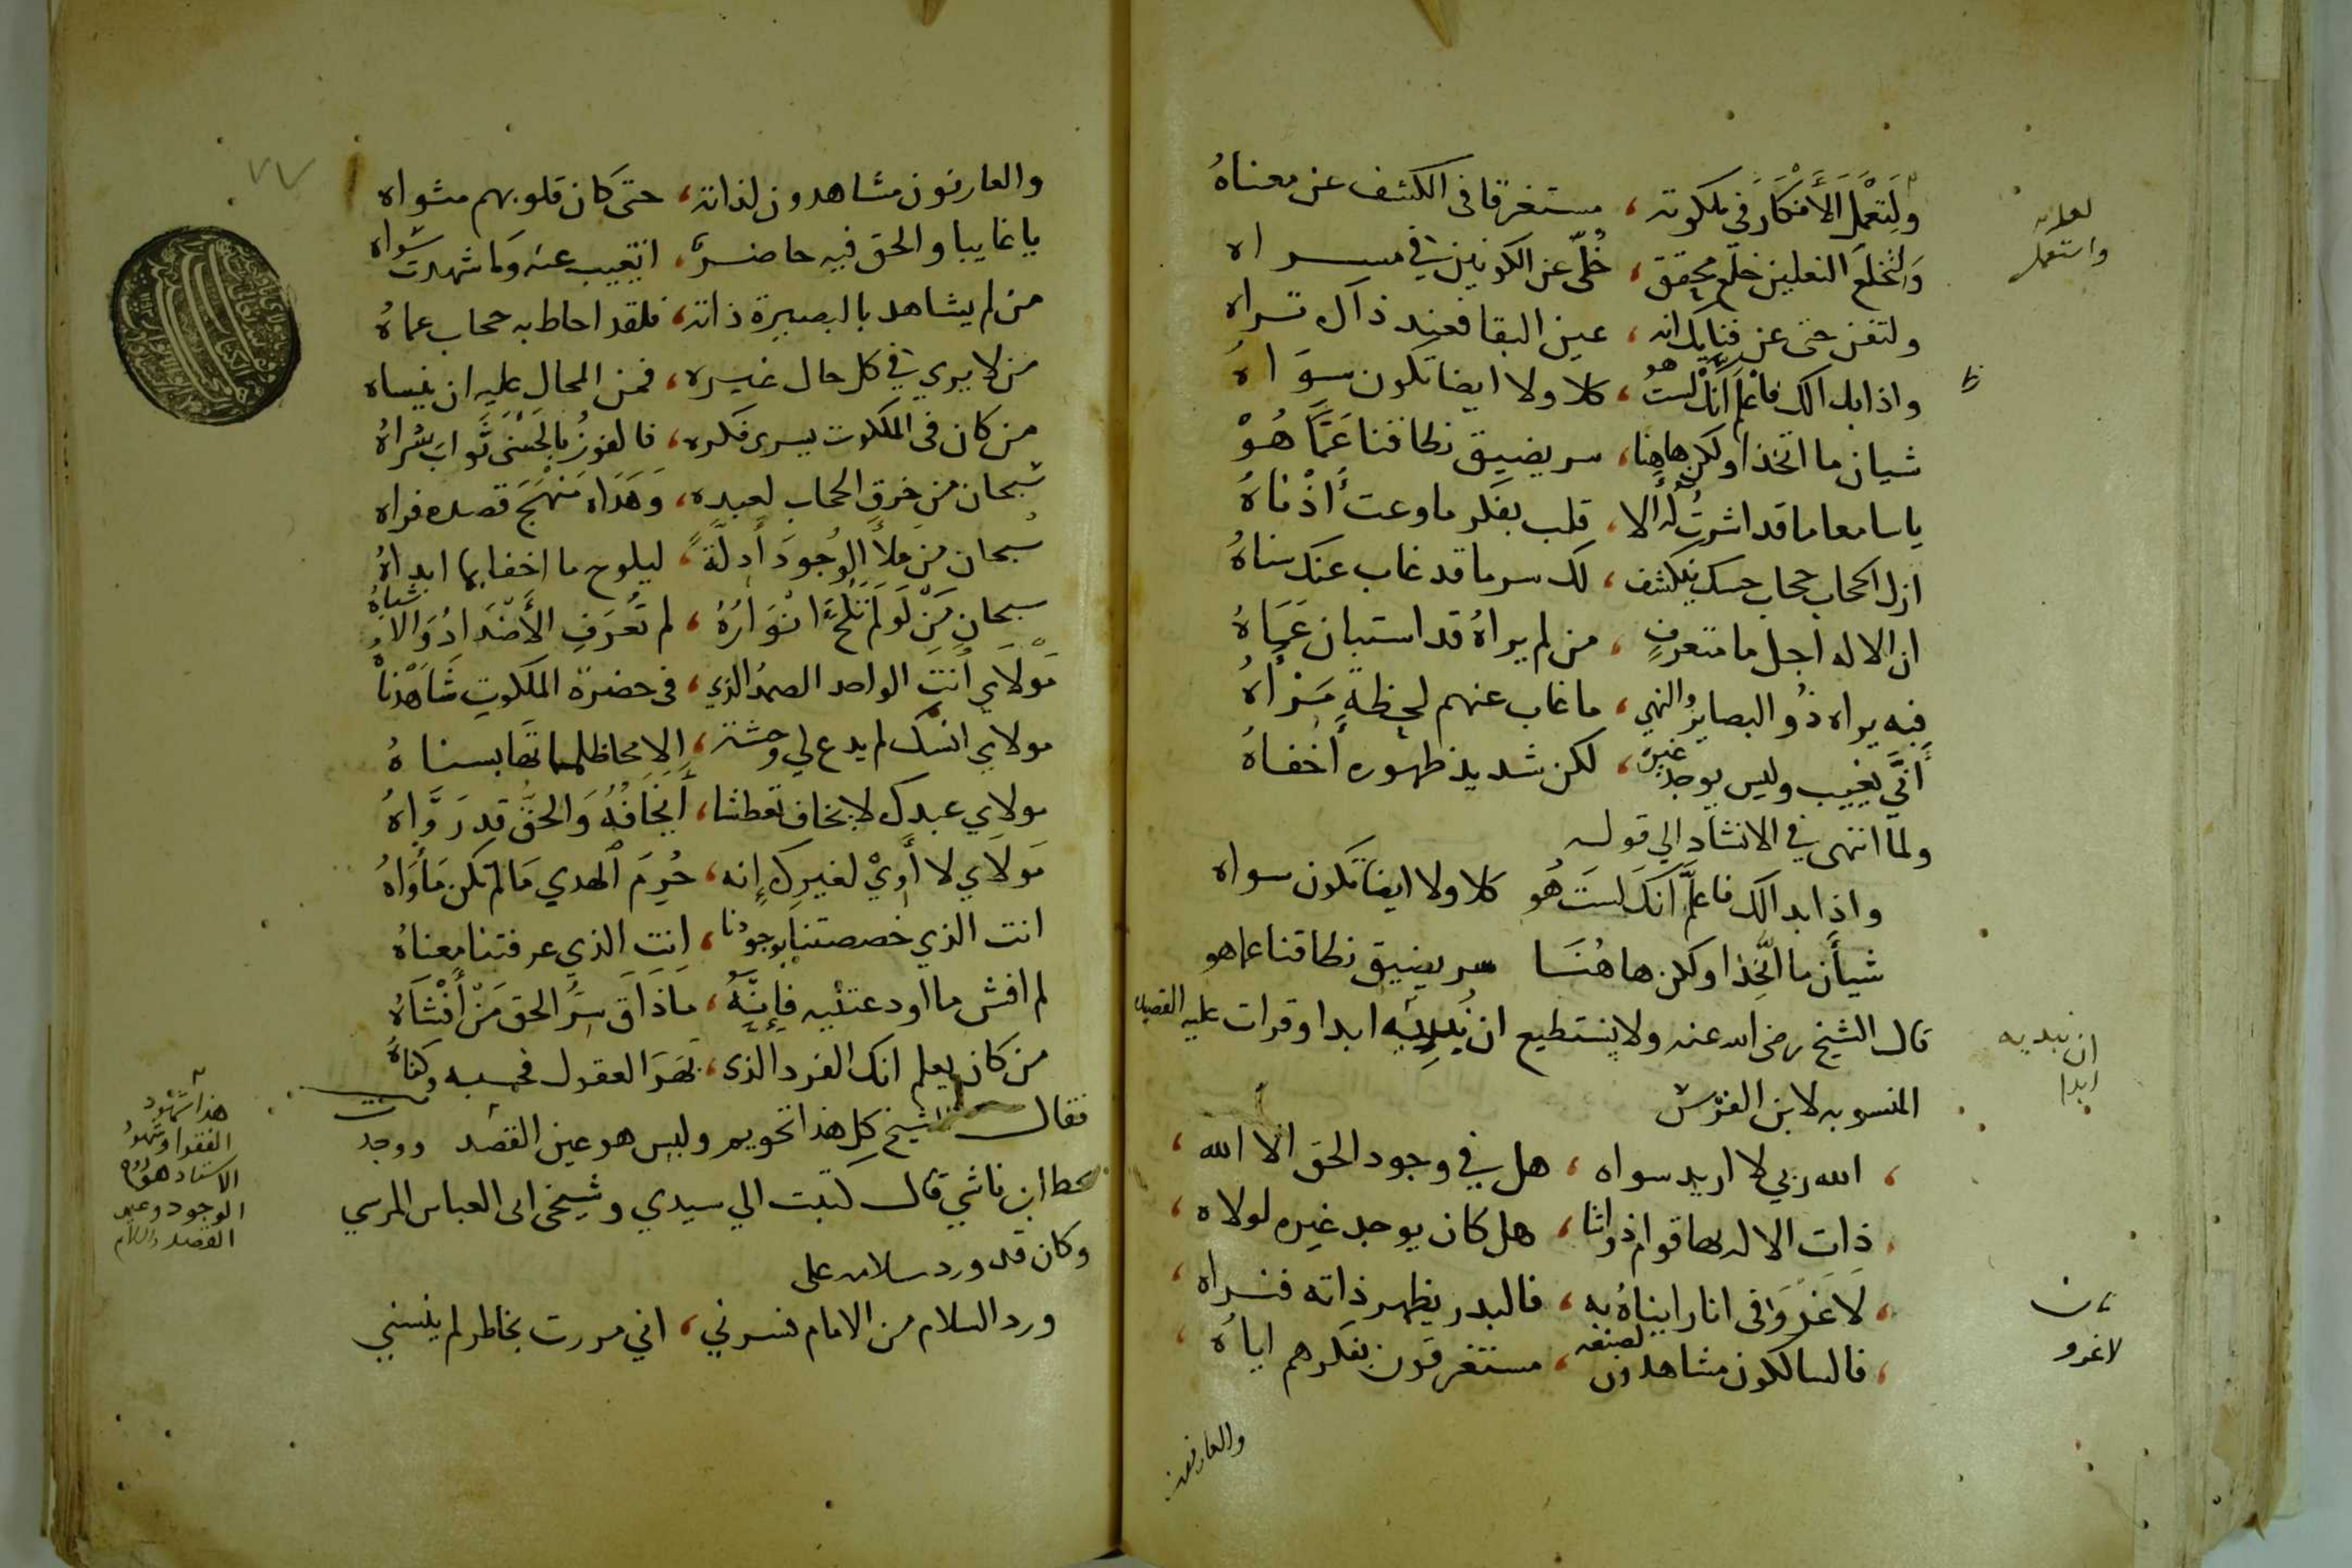 ولتعمل الأفكار في ملكوته ، مستغرقا في الكشف عن معناهُ
ولتخلع النعلين خلع محقق ، خلّى عن الكونين في مسراه
ولتفن حتى عن فنايك انه ، عين البقا فعند ذاك تراه
واذا بدا لك فاعلم أنّك لستُ هو ، كلا ولا ايضا تكون سوَاهُ
شيان ما اتخذا ولكن هاهنا ، سر يضيق نطاقنا عَمَّا هُوْ
يا سامعا ما قد اشرتُ له ألا ، قلب يفكر ما وعت أُذْناهُ
ازل الحجاب حجاب حسك ينكشف ، لك سر ما قد غاب عنك سناهُ
ان الاله اجل ما متعرفٍ ، من لم يراهُ قد استبان عَمَاهُ
فيه يراه ذُو البصاير والنهي ، ما غاب عنهم لحظةٍ مَرْأهُ
أَنَّي يغيب وليس يوجد غيرهُ ، لكن شديد ظهوره أخفاهُ
ولما انتهى في الانشاد الي قوله
واذا بدا لك فاعلم أنكَ لستَ هُو كلا ولا ايضا تكون سواه
شيأن ما اتّخِذا ولكن هاهُنَا سر يضيق نطاقنا عما هو
قال الشيخ رضي الله عنه ولا نستطيع ان نُبديه ابدا وقرات عليه القصيده
المنسوبه لابن العرّيش
، الله ربي لا اريد سواه ، هل في وجود الحق الا الله ،
، ذات الاله بها قوام ذواتنا ، هل كان يوجد غيره لولاه ،
، لَا غَرْوَ في انا رايناهُ به ، فالبدر يظهر ذاته فنراه ،
، فالسالكون مشاهدون لصنعه ، مستغرقون بفكرهم اياهُ ،
والعارفون
لعله
واستعمل
ان نبديه
ابدا
لا غرو
٧٧
والعارفون مشاهدون لذاته ، حتى كان قلوبهم مثواه
يا غايبا والحق فيه حاضرٌ ، ايغيب عنه وما شهدت سواه
من لم يشاهد بالبصيرة ذاته ، فلقد احاط به حجاب عماهُ
من لا يري في كل حال غيره ، فمن المحال عليه ان ينساه
من كان في الملكوت يسرى فكره ، فالفوزُ بالحسنى ثواب سُراهُ
سُبحان من خرق الحجاب لعبده ، وَهَدَاه مَنْهَجَ قصده فراه
سُبحان من ملأ الوُجودَ أدلةً ، ليلوح ما اخفا بما ابداهُ
سبحان مَنْ لَوْ لَم تَلُحْ انْوَارُهُ ، لم تُعرَفِ الأَضْدَادُ وَالأشباهُ
مَوْلَاي أنتِ الواحد الصمدُ الذي ، في حضرة الملكوتِ شَاهَدْناهُ
مولاي انسك لم يدع لي وحشة ، الا محا ظلماتها بسناهُ
مولاي عبدك لا يخاف تعطشا ، أيَخَافُهُ وَالحَقُّ قد رَوَّاهُ
مَولَاي لا أَوِيْ لغيرك إنه ، حُرِمَ الهدي مَا لم تكن مَأْوَاهُ
انت الذي خصصتنا بوجودنا ، انت الذي عرفتنا معناهُ
لم افش ما اودعتنيه فإنّهُ ، مَا ذَاقَ سِرَّ الحق مَنْ أَفْشَاهُ
من كان يعلم انك الفرد الذي ، بَهَرَ العقول فحسبه وكفاهُ
فقال الشيخ كل هذا تحويم وليس هو عين القصد ووجدت
بخط ابن ناشي قال كتبت الي سيدي وشيخى ابى العباس المرسي
وكان قد ورد سلامه على
ورد السلام من الامام فسرني ، اني مررت بخاطر لم ينسني
هذا شهود
الفقرا وشهود
الاستاد هو
الوجود وعين
القصد والسلام